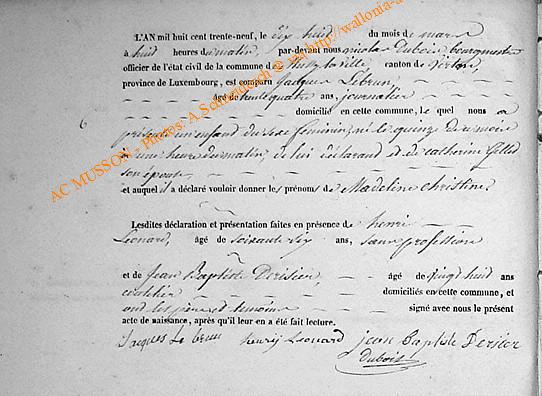 L'AN mil huit cent trente-neuf, le dix huit du mois de mars
à huit heures du matin, par-devant nous nicolas Dubois, bourgmestre
officier de l'état civil de la commune de mussy la ville, canton de virton,
province de Luxembourg, est comparu Jacques Lebrun,
âgé de trente quatre ans, journalier
domicilié en cette commune, Le quel nous a
6
présenté un enfant du sexe féminin, né le quinze de ce mois
à une heure du matin, de lui déclarant et de catherine Gilles
son épouse
et auquel il a déclaré vouloir donner les prénoms de Madeline christine
Lesdites déclaration et présentation faites en présence de henri
Léonard, âgé de soixante six ans, sans profession
et de Jean Baptiste Derisier, âgé de vingt huit ans
domiciliés en cette commune, et
ont les père et témoins signé avec nous le présent
acte de naissance, après qu'il leur en a été fait lecture.
Jacques Le brun henrij Leonard jean Baptiste Derisier
Dubois
AC MUSSON - Photos: A. Schmickrath @ via http://wallonia-a